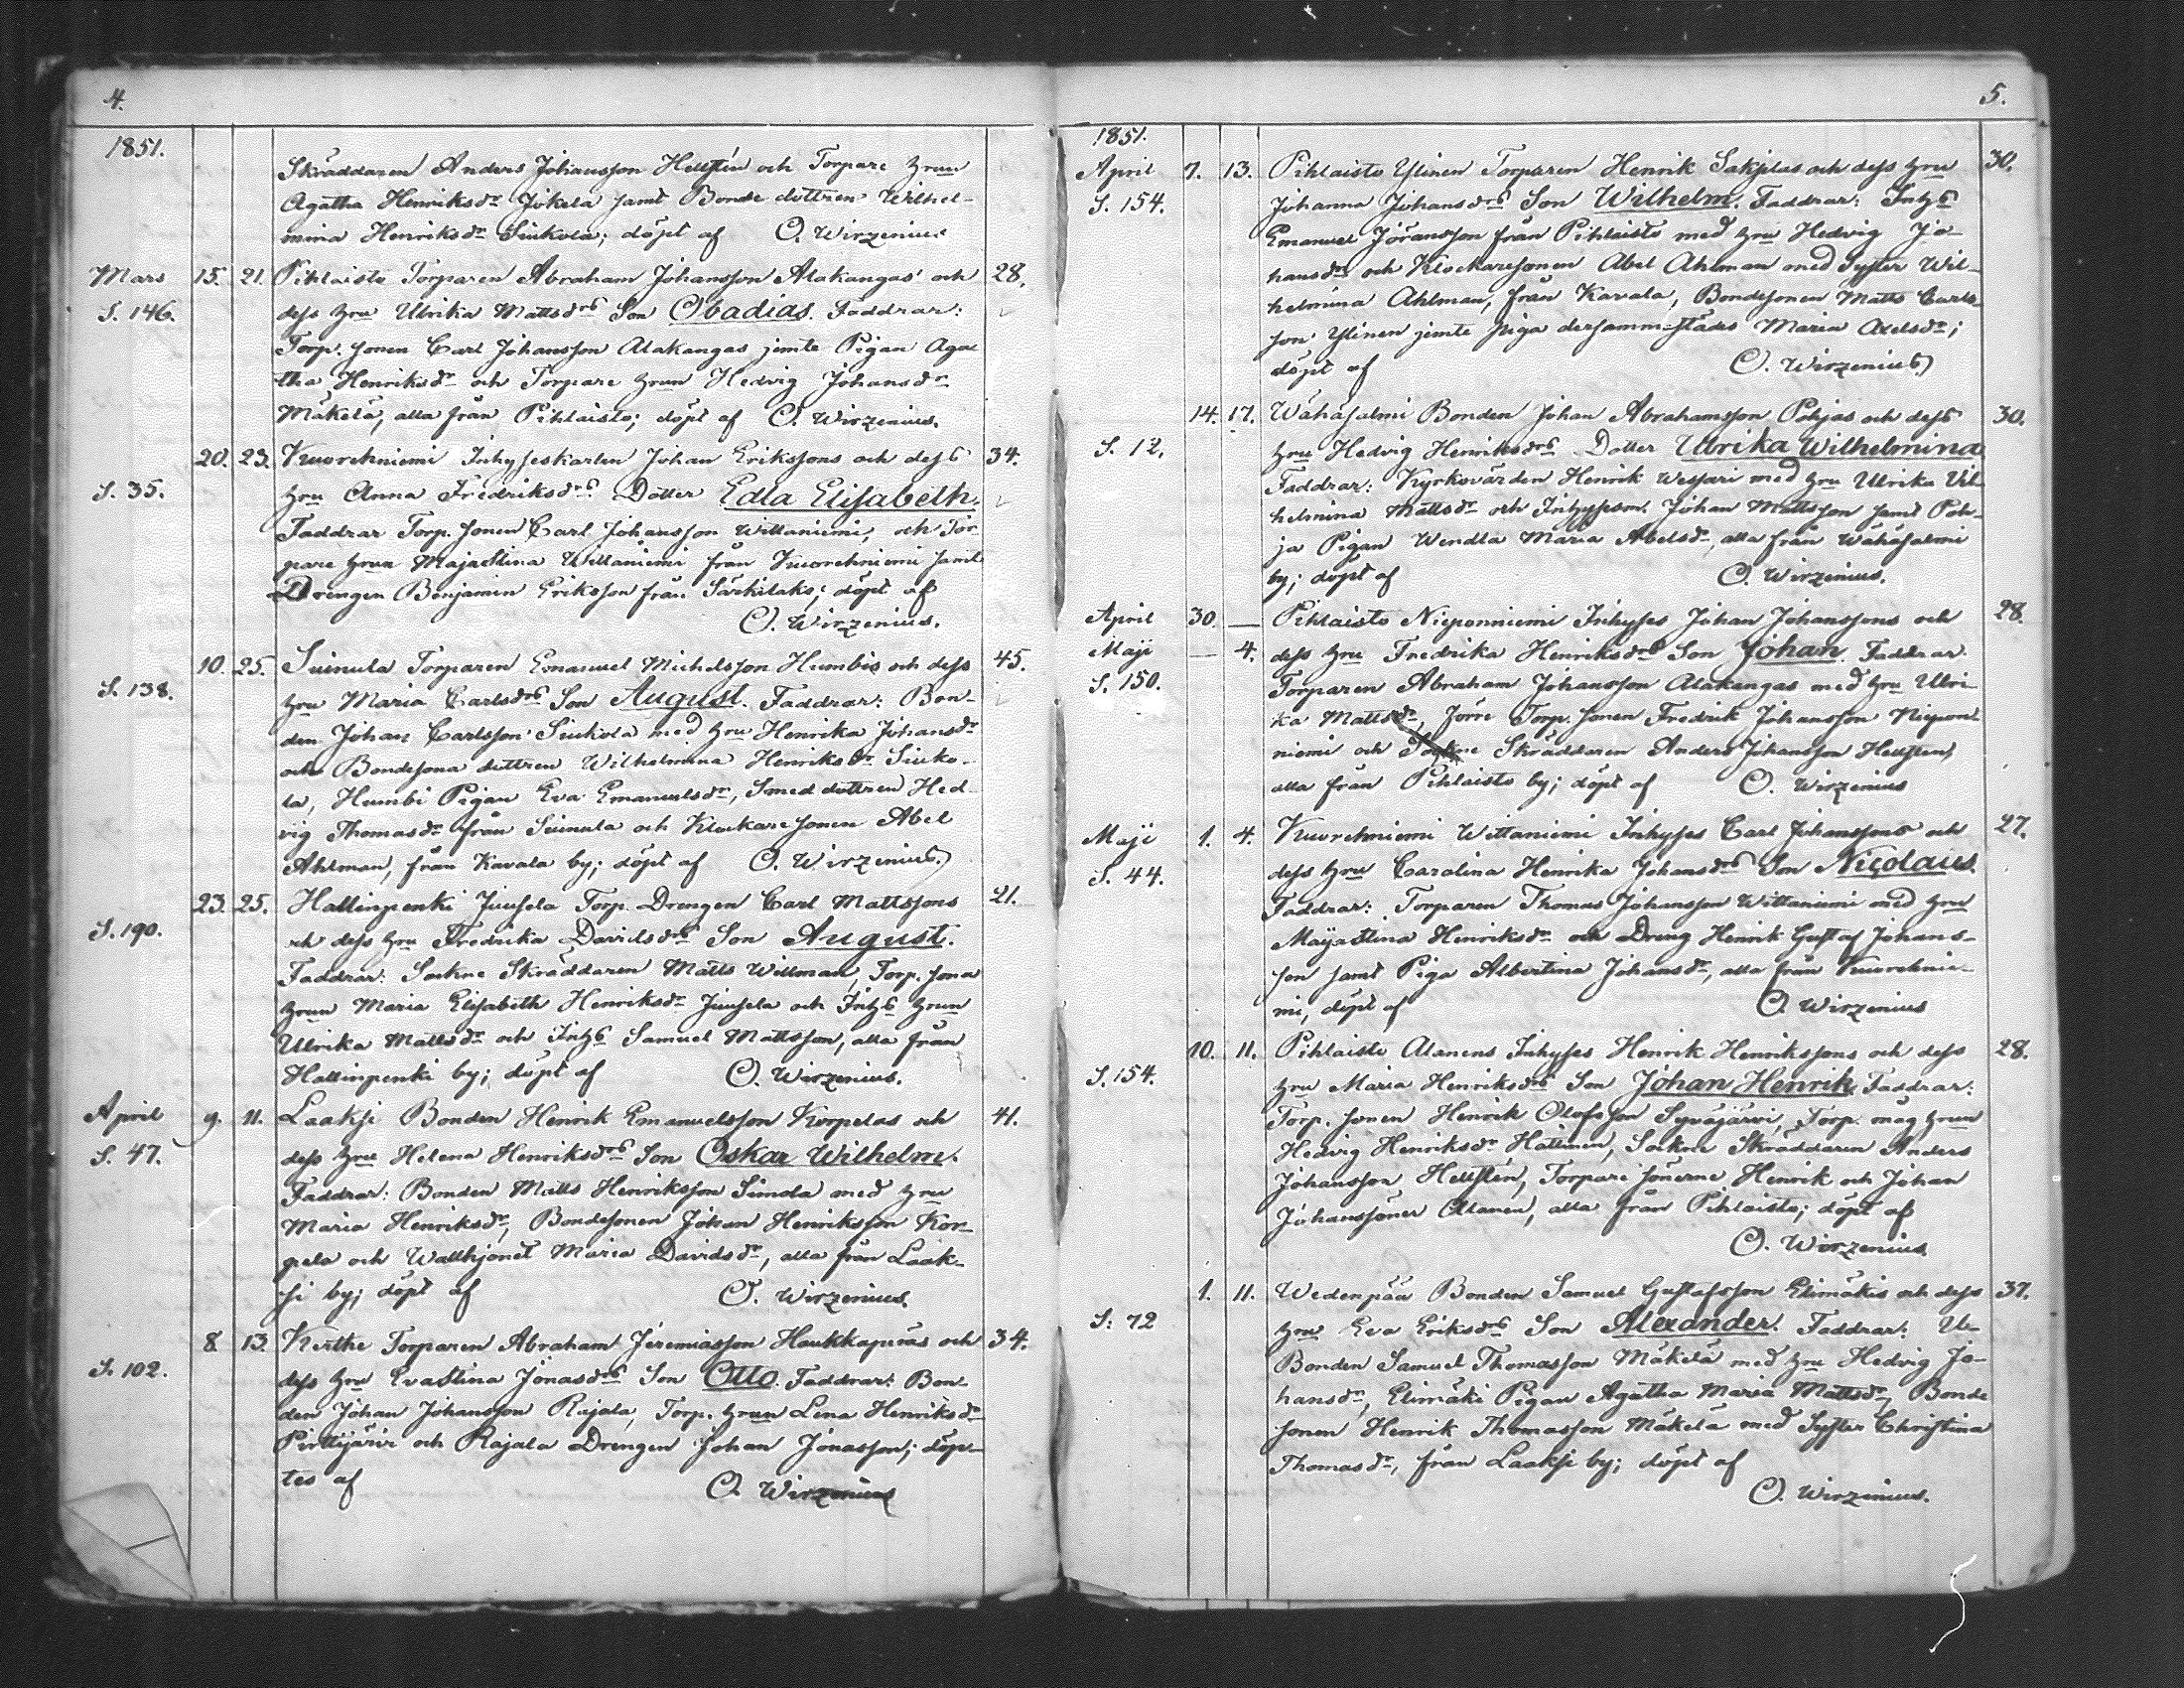 4.
1851.
Skräddaren Anders Johansson Hellstén och Torpare hrun
Agatha Henriksdr Jokela samt Bonde dottren Wilhel-
mina Henriksdr Siukola; döpt af O. Wirzenius
Mars 15. 21. Pihlaisto Torparen Abraham Johansson Alakangas och 28.
S. 146. dess hru Ulrika Mattsdrs Son Obadias. Faddrar:
Torp. sonen Carl Johansson Alakangas jemte Pigan Aga-
tha Henriksdr och Torpare hrun Hedvig Johansdr
Mäkelä, alla från Pihlaisto; döpt af O. Wirzenius.
20. 23. Kuorehniemi Inhyseskarlen Johan Erikssons och dess 34.
S. 35. hru Anna Fredriksdrs Dotter Edla Elisabeth.
Faddrar Torp. sonen Carl Johansson Wittaniemi, och Tor-
pare hrun Majastina Wittaniemi från Kuorehniemi samt
Drengen Benjamin Eriksson från Särkilaks; döpt af
O. Wirzenius.
10. 25. Suinula Torparen Emanuel Michelsson Humbis och dess 45.
S. 138. hru Maria Carlsdrs Son August. Faddrar: Bon-
den Johan Carlsson Siukola med hru Henrika Johansdr
och Bondesona dottren Wilhelmina Henriksdr Siuko-
la, Humbi Pigan Eva Emanuelsdr, Smed dottren Hed-
vig Thomasdr från Suinula och Klockare sonen Abel
Ahlman, från Kavala by; döpt af O. Wirzenius.
23. 25. Hallinpenki Juusela Torp. Drengen Carl Mattssons 21.
S. 190. och dess hru Fredrika Davidsdrs Son August.
Faddrar: Sockne Skräddaren Matts Willman, Torp. sona
hrun Maria Elisabeth Henriksdr Juusela och Inhs hrun
Ulrika Mattsdr och Inhs Samuel Mattsson, alla från
Hallinpenki by; döpt af O. Wirzenius.
April 9. 11. Laaksi Bonden Henrik Emanuelsson Korpelas och 41.
S. 47. dess hru Helena Henriksdrs Son Oskar Wilhelm.
Faddrar: Bonden Matts Henriksson Simola med hru
Maria Henriksdr, Bondesonen Johan Henriksson Kor-
pela och Wallhjonet Maria Davidsdr, alla från Laak-
si by; döpt af O. Wirzenius.
8 13. Kerthe Torparen Abraham Jeremiasson Haukkaperäs och 34.
S. 102. dess hru Evastina Jonasdrs Son Otto. Faddrar: Bon-
den Johan Johansson Rajala, Torp. hrun Lena Henriksdr
Pirttijärir och Rajala Drengen Johan Jonasson; döp-
tes af O. Wirzenius
5.
1851.
April 7. 13. Pihlaisto Ylinen Torparen Henrik Sakselas och dess hru 30.
S. 154. Johanna Johansdrs Son Wilhelm. Faddrar: Inhs
Emanuel Göransson från Pihlaisto med hru Hedvig Jo-
hansdr och Klockaresonen Abel Ahlman med Syster Wil-
helmina Ahlman, från Kavala, Bondesonen Matts Carls-
son Ylinen jemte piga dersammastädes Maria Axelsdr;
döpt af O. Wirzenius
14. 17. Wähäsalmi Bonden Johan Abrahamsson Pohjas och dess 30.
S. 12. hru Hedvig Henriksdrs Dotter Ulrika Wilhelmina
Faddrar: Kyrkovärden Henrik Wessari med hru Ulrika Vil-
helmina Mattsdr och Inhysesm. Johan Mattsson samt Poh-
ja Pigan Wendla Maria Abelsdr, alla från Wähäsalmi
by; döpt af O. Wirzenius.
April 30. — Pihlaisto Nieponniemi Inhyses Johan Johanssons och 28.
Maji — 4. dess hru Fredrika Henriksdrs Son Johan. Faddrar.
S. 150. Torparen Abraham Johansson Alakangas med hru Ulri-
ka Mattsdr, förre Torp. sonen Fredrik Johansson Niepon-
niemi och Sockne Skräddaren Anders Johansson Hellsten,
alla från Pihlaisto by; döpt af O. Wirzenius
Maji 1. 4. Kuorehniemi Wittaniemi Inhyses Carl Johanssons och 27.
S. 44. dess hru Carolina Henrika Johansdrs Son Nicolaus.
Faddrar: Torparen Thomas Johansson Wittaniemi med hru
Majastina Henriksdr och Dreng Henrik Gustaf Johans-
son samt Piga Albertina Johansdr, alla från Kuorehnie-
mi, döpt af O. Wirzenius
10. 11. Pihlaisto Alanens Inhyses Henrik Henrikssons och dess 28.
S. 154. hru Maria Henriksdrs Son Johan Henrik. Faddrar:
Torp. sonen Henrik Olofsson Syväjärvi, Torp. måg hrun
Hedvig Henriksdr Hallinen, Sockne Skräddaren Anders
Johansson Hellstén, Torpare sönerne Henrik och Johan
Johanssöner Alanen, alla från Pihlaisto; döpt af
O. Wirzenius.
1. 11. Wedenpää Bonden Samuel Gustafsson Elimäkis och dess 37.
S. 72 hru Eva Eriksdrs Son Alexander. Faddrar: Ut-
Bonden Samuel Thomasson Mäkelä med hru Hedvig Jo-
hansdr, Elimäki Pigan Agatha Maria Mattsdr, Bonde
sonen Henrik Thomasson Mäkelä med Syster Christina
Thomasdr, från Laaksi by; döpt af
O. Wirzenius.